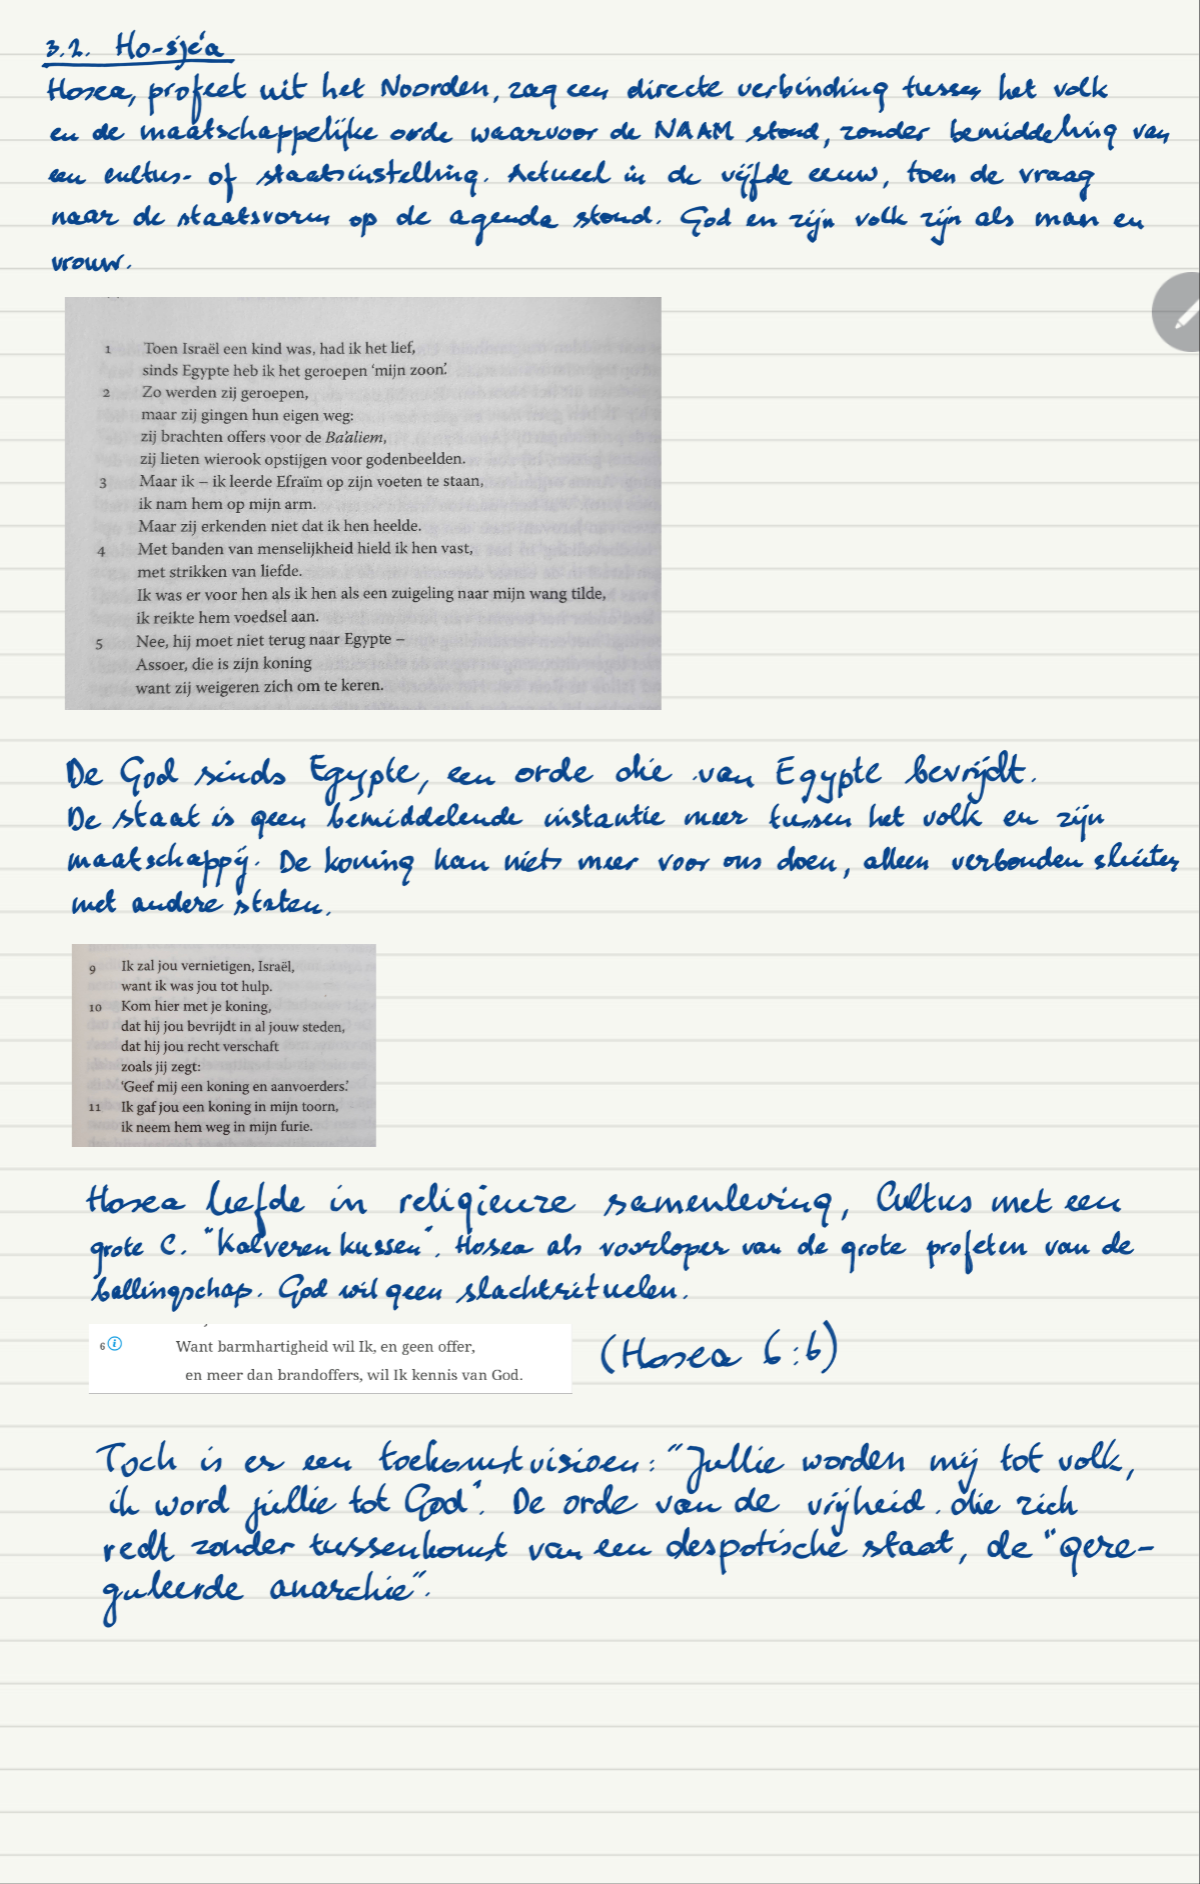 3.2. Ho-sjé'a
Hosea, profeet uit het Noorden, zag een directe verbinding tussen het volk
en de maatschappelijke orde waarvoor de NAAM stond, zonder bemiddeling van
een cultus- of staatsinstelling. Actueel in de vijfde eeuw, toen de vraag
naar de staatsvorm op de agenda stond. God en zijn volk zijn als man en
vrouw.
1 Toen Israël een kind was, had ik het lief,
sinds Egypte heb ik het geroepen ‘mijn zoon’.
2 Zo werden zij geroepen,
maar zij gingen hun eigen weg:
zij brachten offers voor de Ba’aliem,
zij lieten wierook opstijgen voor godenbeelden.
3 Maar ik – ik leerde Efraïm op zijn voeten te staan,
ik nam hem op mijn arm.
Maar zij erkenden niet dat ik hen heelde.
4 Met banden van menselijkheid hield ik hen vast,
met strikken van liefde.
Ik was er voor hen als ik hen als een zuigeling naar mijn wang tilde,
ik reikte hem voedsel aan.
5 Nee, hij moet niet terug naar Egypte –
Assoer, die is zijn koning
want zij weigeren zich om te keren.
De God sinds Egypte, een orde die van Egypte bevrijdt.
De staat is geen bemiddelende instantie meer tussen het volk en zijn
maatschappij. De koning kan niets meer voor ons doen, alleen verbonden sluiten
met andere staten.
9 Ik zal jou vernietigen, Israël,
want ik was jou tot hulp.
10 Kom hier met je koning,
dat hij jou bevrijdt in al jouw steden,
dat hij jou recht verschaft
zoals jij zegt:
‘Geef mij een koning en aanvoerders.’
11 Ik gaf jou een koning in mijn toorn,
ik neem hem weg in mijn furie.
Hosea leefde in religieuze samenleving, Cultus met een
grote C. "Kalveren kussen". Hosea als voorloper van de grote profeten van de
ballingschap. God wil geen slachtrituelen.
6 Want barmhartigheid wil Ik, en geen offer,
en meer dan brandoffers, wil Ik kennis van God.
(Hosea 6:6)
Toch is er een toekomstvisioen: "Jullie worden mij tot volk,
ik word jullie tot God". De orde van de vrijheid die zich
redt zonder tussenkomst van een despotische staat, de "gere-
guleerde anarchie".